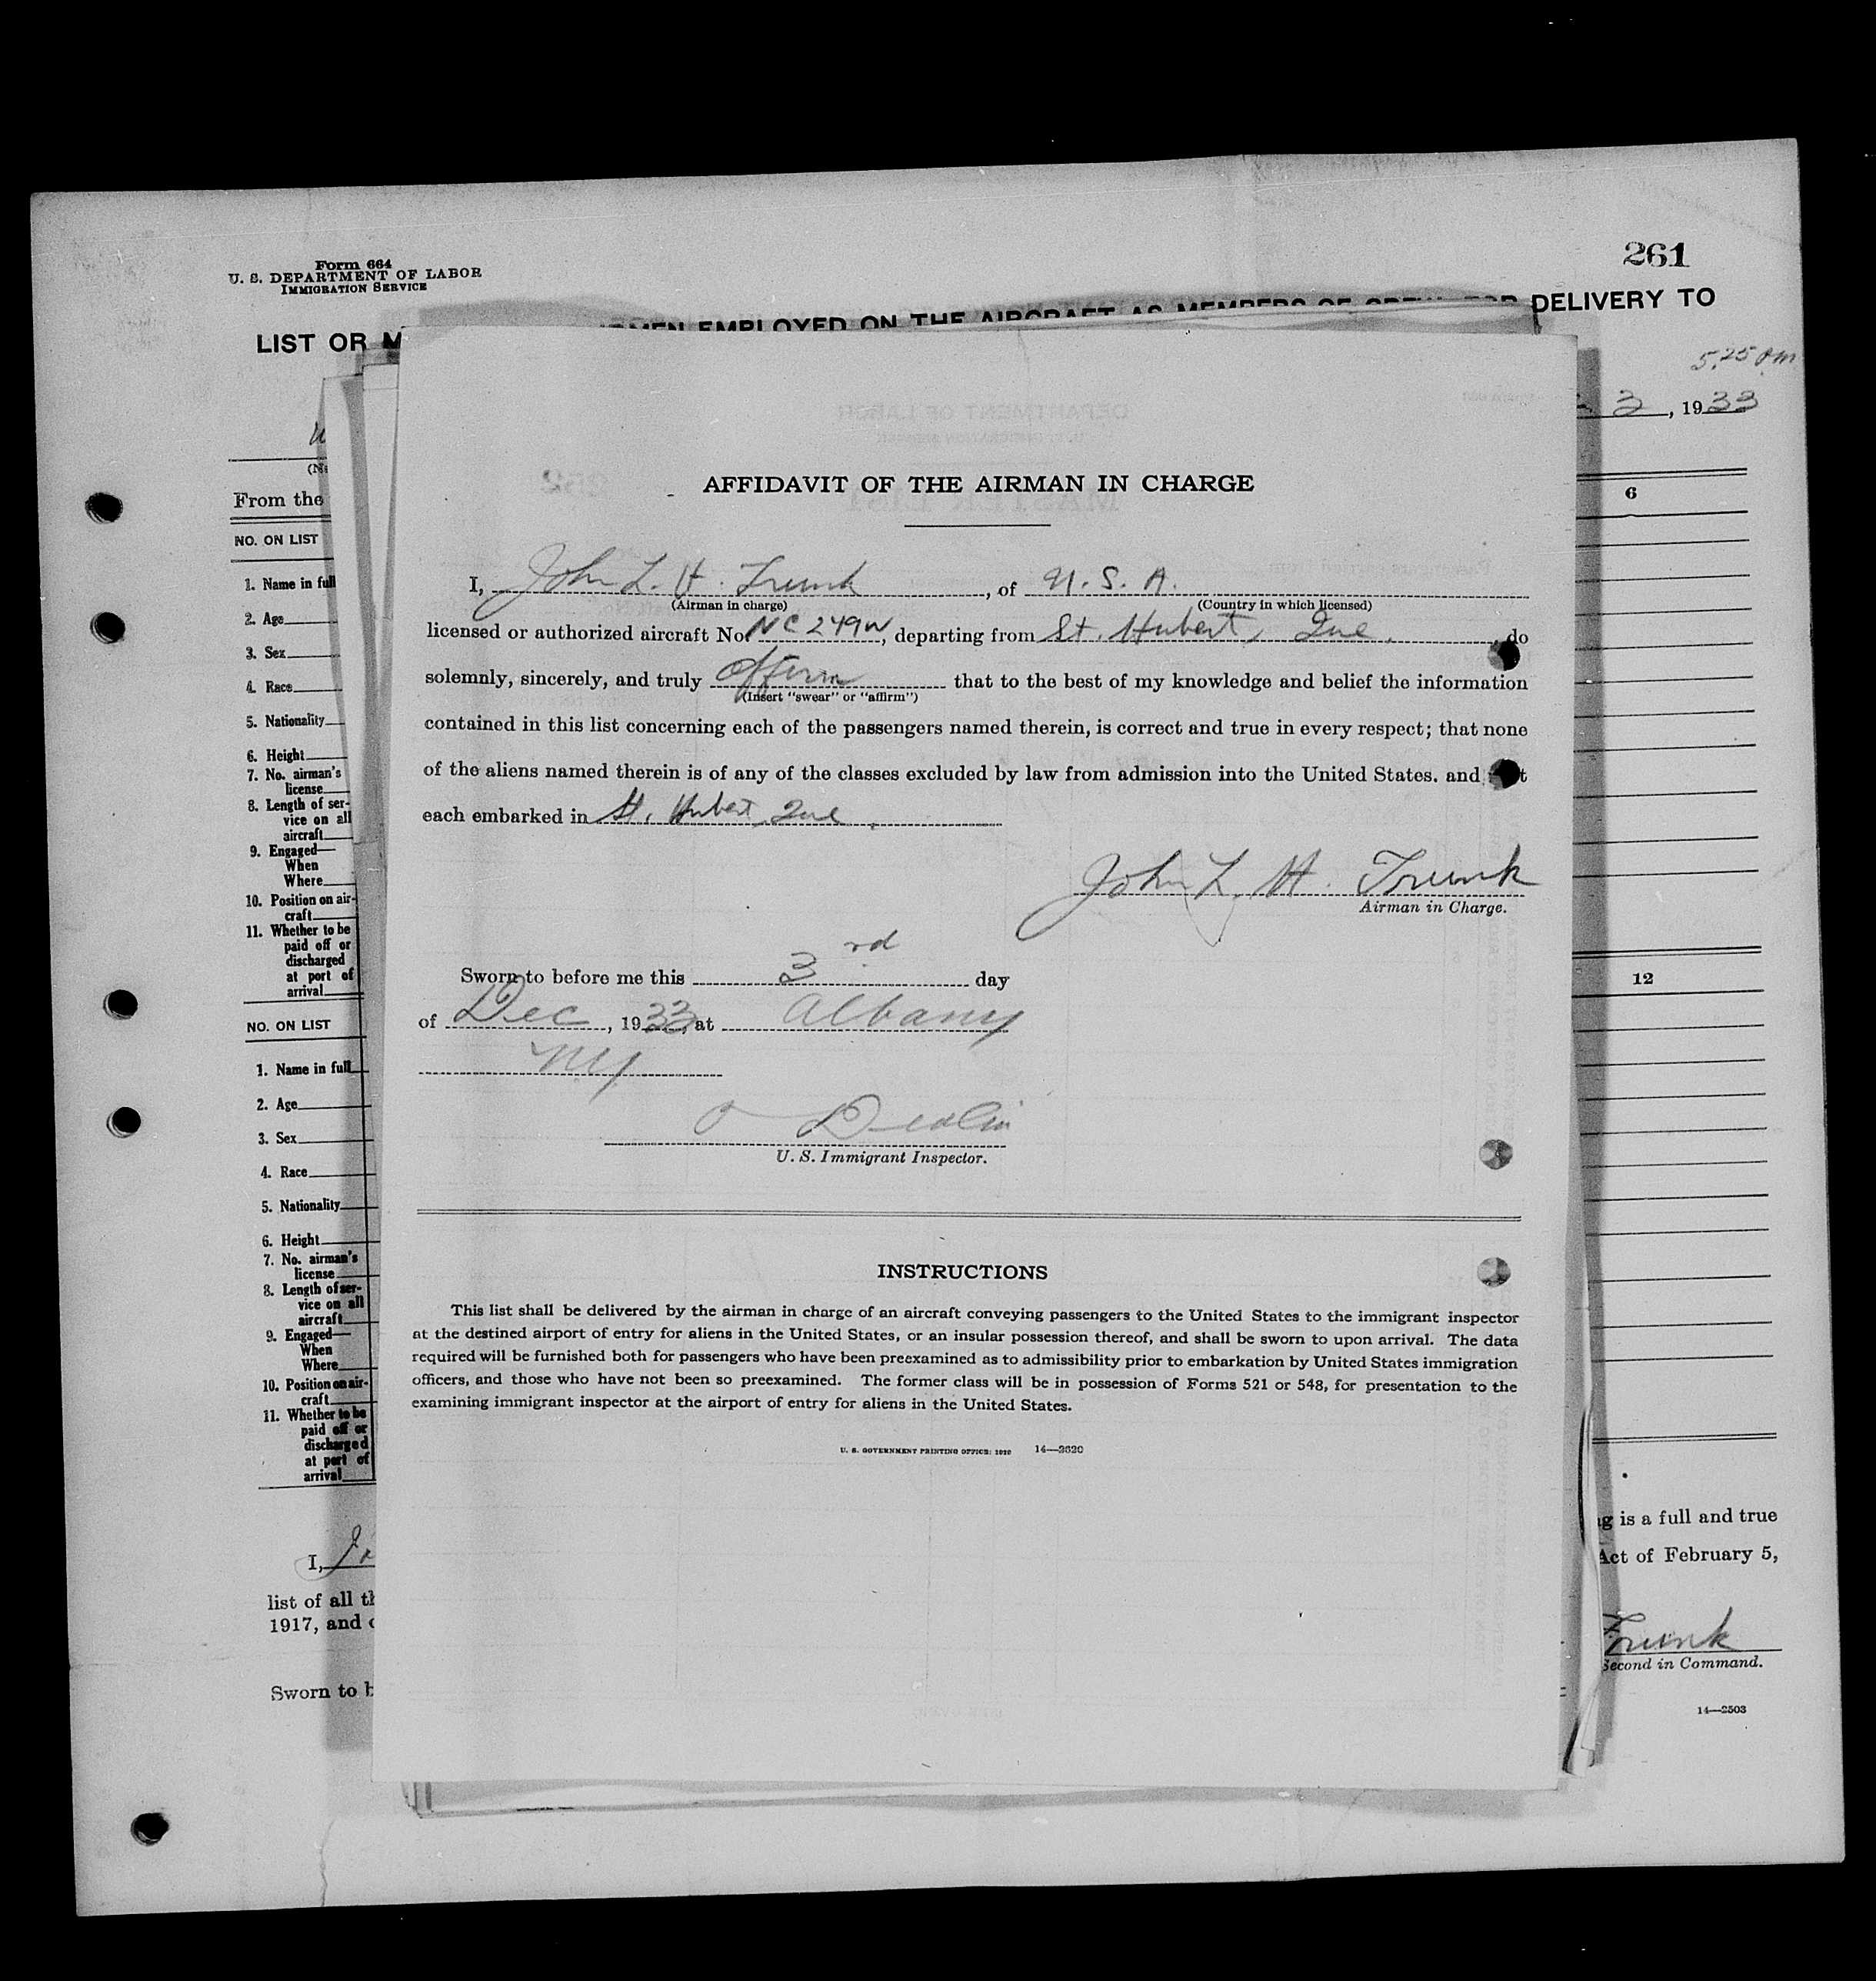 Form 664
U. S. DEPARTMENT OF LABOR
IMMIGRATION SERVICE
261
LIST OR EMPLOYED ON THE AIRCRAFT AS MEMBERS OF CREW, FOR DELIVERY TO
5.25 PM
3, 1933
From the
6
NO. ON LIST
1. Name in full
2. Age
3. Sex
4. Race
5. Nationality
6. Height
7. No. airman's
license
8. Length of ser-
vice on all
aircraft
9. Engaged—
When
Where
10. Position on air-
craft
11. Whether to be
paid off or
discharged
at port of
arrival
12
NO. ON LIST
1. Name in full
2. Age
3. Sex
4. Race
5. Nationality
6. Height
7. No. airman's
license
8. Length of ser-
vice on all
aircraft
9. Engaged—
When
Where
10. Position on air-
craft
11. Whether to be
paid off or
discharged
at port of
arrival
I,
list of all
1917, and
Sworn to
is a full and true
Act of February 5,
Trunk
Second in Command.
14—2503
AFFIDAVIT OF THE AIRMAN IN CHARGE
I, John L. H. Trunk, of U. S. A.
(Airman in charge) (Country in which licensed)
licensed or authorized aircraft No. NC249W, departing from St. Hubert, Que., do
solemnly, sincerely, and truly affirm that to the best of my knowledge and belief the information
(Insert "swear" or "affirm")
contained in this list concerning each of the passengers named therein, is correct and true in every respect; that none
of the aliens named therein is of any of the classes excluded by law from admission into the United States. and
each embarked in St. Hubert Que.
John L. H. Trunk
Airman in Charge.
Sworn to before me this 3rd day
of Dec, 1933, at Albany
NY
U. S. Immigrant Inspector.
INSTRUCTIONS
This list shall be delivered by the airman in charge of an aircraft conveying passengers to the United States to the immigrant inspector
at the destined airport of entry for aliens in the United States, or an insular possession thereof, and shall be sworn to upon arrival. The data
required will be furnished both for passengers who have been preexamined as to admissibility prior to embarkation by United States immigration
officers, and those who have not been so preexamined. The former class will be in possession of Forms 521 or 548, for presentation to the
examining immigrant inspector at the airport of entry for aliens in the United States.
U. S. GOVERNMENT PRINTING OFFICE: 14—2620